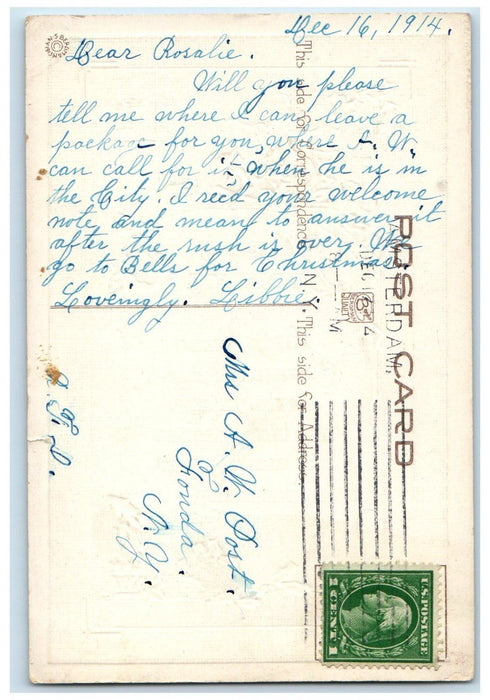 Dec 16, 1914.
Dear Rosalie.
Will you please
tell me where I can leave a
package for you, where A. W.
can call for it when he is in
the City. I recd your welcome
note and mean to answer it
after the rush is over. We
go to Bells for Christmas.
Loveingly. Libbie.
POST CARD
This side for Correspondence
This side for Address.
TERDAM,
N.Y.
DEC
M
Mrs A. W. Post.
Fonda.
N.Y.
R. F. D.
U.S. POSTAGE
1 CENT 1
QUALITY